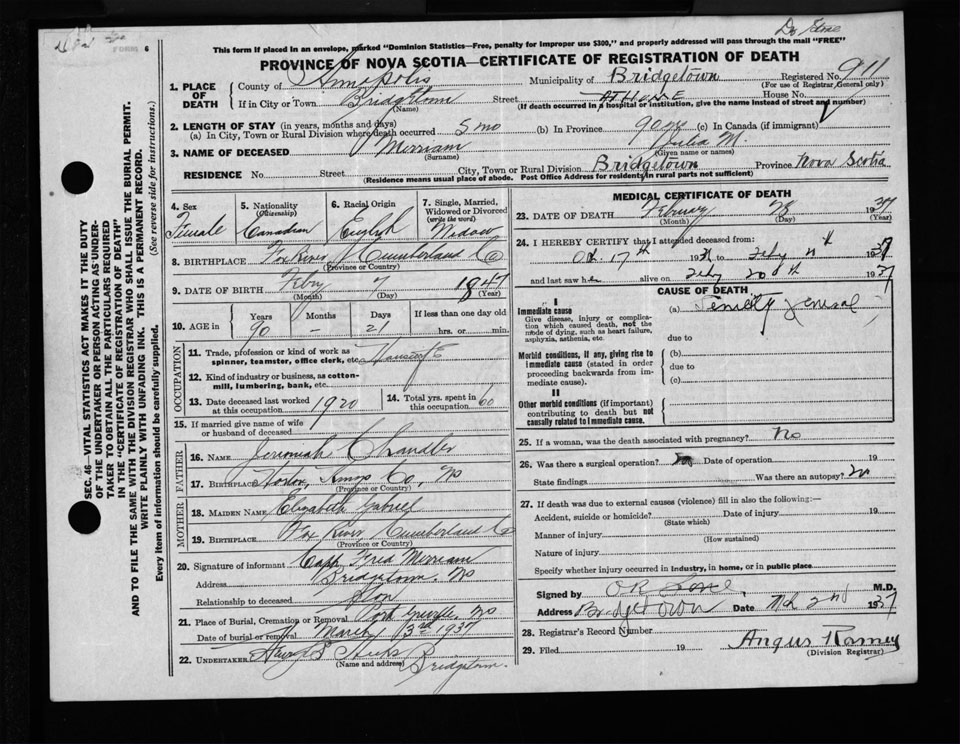 Dr Stone
FORM 6
This form if placed in an envelope, marked "Dominion Statistics—Free, penalty for improper use $300," and properly addressed will pass through the mail "FREE"
PROVINCE OF NOVA SCOTIA—CERTIFICATE OF REGISTRATION OF DEATH
1. PLACE OF DEATH County of Annapolis Municipality of Bridgetown Registered No. 911
(For use of Registrar General only)
If in City or Town Bridgetown Street AT HOME House No.
(Name) (If death occurred in a hospital or institution, give the name instead of street and number)
2. LENGTH OF STAY (in years, months and days)
(a) In City, Town or Rural Division where death occurred 5 mo (b) In Province 90 yr (c) In Canada (if immigrant)
3. NAME OF DECEASED Merriam Julia M.
(Surname) (Given name or names)
RESIDENCE No. Street City, Town or Rural Division Bridgetown Province Nova Scotia
(Residence means usual place of abode. Post Office Address for residents in rural parts not sufficient)
4. Sex Female
5. Nationality (Citizenship) Canadian
6. Racial Origin English
7. Single, Married, Widowed or Divorced (write the word) Widow
8. BIRTHPLACE Fox River Cumberland Co
(Province or Country)
9. DATE OF BIRTH Febry 7 1847
(Month) (Day) (Year)
10. AGE in Years Months Days If less than one day old
90 – 21 hrs. or min.
OCCUPATION
11. Trade, profession or kind of work as spinner, teamster, office clerk, etc. Housewife
12. Kind of industry or business, as cotton-mill, lumbering, bank, etc.
13. Date deceased last worked at this occupation 1920
14. Total yrs. spent in this occupation 60
15. If married give name of wife or husband of deceased
FATHER
16. Name Jeremiah Chandler
17. Birthplace Kings Co, NS
(Province or Country)
MOTHER
18. MAIDEN NAME Elizabeth
19. BIRTHPLACE Fox River Cumberland Co
(Province or Country)
20. Signature of informant Capt Fred Merriam
Address Bridgetown. NS
Relationship to deceased Son
21. Place of Burial, Cremation or Removal Port Greville, NS
Date of burial or removal March 3rd 1937
22. UNDERTAKER Hicks Bridgetown.
(Name and address)
MEDICAL CERTIFICATE OF DEATH
23. DATE OF DEATH February 28 1937
(Month) (Day) (Year)
24. I HEREBY CERTIFY that I attended deceased from:
Oct. 17th 193 to Feby 1937
and last saw her alive on Feby 20th 1937
CAUSE OF DEATH
I
Immediate cause
Give disease, injury or complication which caused death, not the mode of dying, such as heart failure, asphyxia, asthenia, etc.
(a) Senility general
due to
Morbid conditions, if any, giving rise to immediate cause (stated in order proceeding backwards from immediate cause).
(b)
due to
(c)
II
Other morbid conditions (if important) contributing to death but not causally related to immediate cause.
25. If a woman, was the death associated with pregnancy? No
26. Was there a surgical operation? Date of operation 19
State findings Was there an autopsy? no
27. If death was due to external causes (violence) fill in also the following:—
Accident, suicide or homicide? Date of injury 19
(State which)
Manner of injury
(How sustained)
Nature of injury
Specify whether injury occurred in industry, in home, or in public place
Signed by M.D.
Address Bridgetown Date Mch 2nd 1937
28. Registrar's Record Number
29. Filed 19 Angus Ramey
(Division Registrar)
SEC. 46—VITAL STATISTICS ACT MAKES IT THE DUTY
OF THE UNDERTAKER OR PERSON ACTING AS UNDER-
TAKER TO OBTAIN ALL THE PARTICULARS REQUIRED
IN THE "CERTIFICATE OF REGISTRATION OF DEATH"
AND TO FILE THE SAME WITH THE DIVISION REGISTRAR WHO SHALL ISSUE THE BURIAL PERMIT.
WRITE PLAINLY WITH UNFADING INK. THIS IS A PERMANENT RECORD.
Every item of information should be carefully supplied. (See reverse side for instructions.)